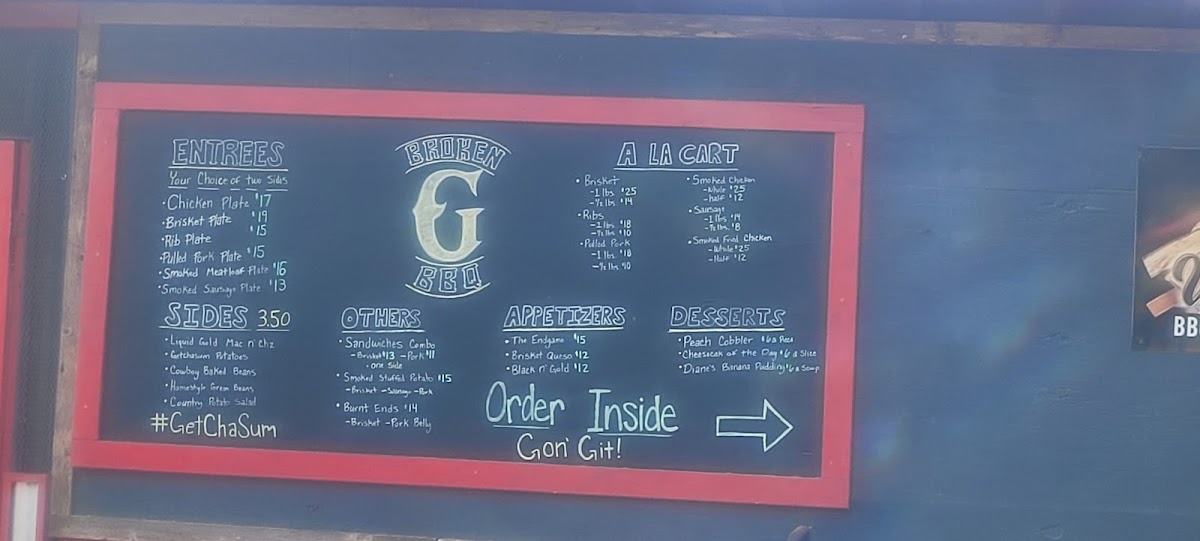 ENTREES
Your Choice of two Sides
• Chicken Plate $17
• Brisket Plate $19
• Rib Plate $15
• Pulled Pork Plate $15
• Smoked Meatloaf Plate $16
• Smoked Sausage Plate $13
BROKEN
G
BBQ
A LA CART
• Brisket
- 1 lbs $25
- ½ lbs $14
• Ribs
- 1 lbs $18
- ½ lbs $10
• Pulled Pork
- 1 lbs $18
- ½ lbs $10
• Smoked Chicken
- Whole $25
- half $12
• Sausage
- 1 lbs $14
- ½ lbs $8
• Smoked Fried Chicken
- Whole $25
- Half $12
SIDES 3.50
• Liquid Gold Mac n' Chz
• Getchasum Potatoes
• Cowboy Baked Beans
• Homestyle Green Beans
• Country Potato Salad
#GetChaSum
OTHERS
• Sandwiches Combo
- Brisket $13 - Pork $11
• one side
• Smoked Stuffed Potato $15
- Brisket - Sausage - Pork
• Burnt Ends $14
- Brisket - Pork Belly
APPETIZERS
• The Endgame $15
• Brisket Queso $12
• Black n' Gold $12
DESSERTS
• Peach Cobbler $6 a Piece
• Cheesecak of the Day $6 a Slice
• Diane's Banana Pudding $6 a Scoop
Order Inside
Gon' Git!
BB